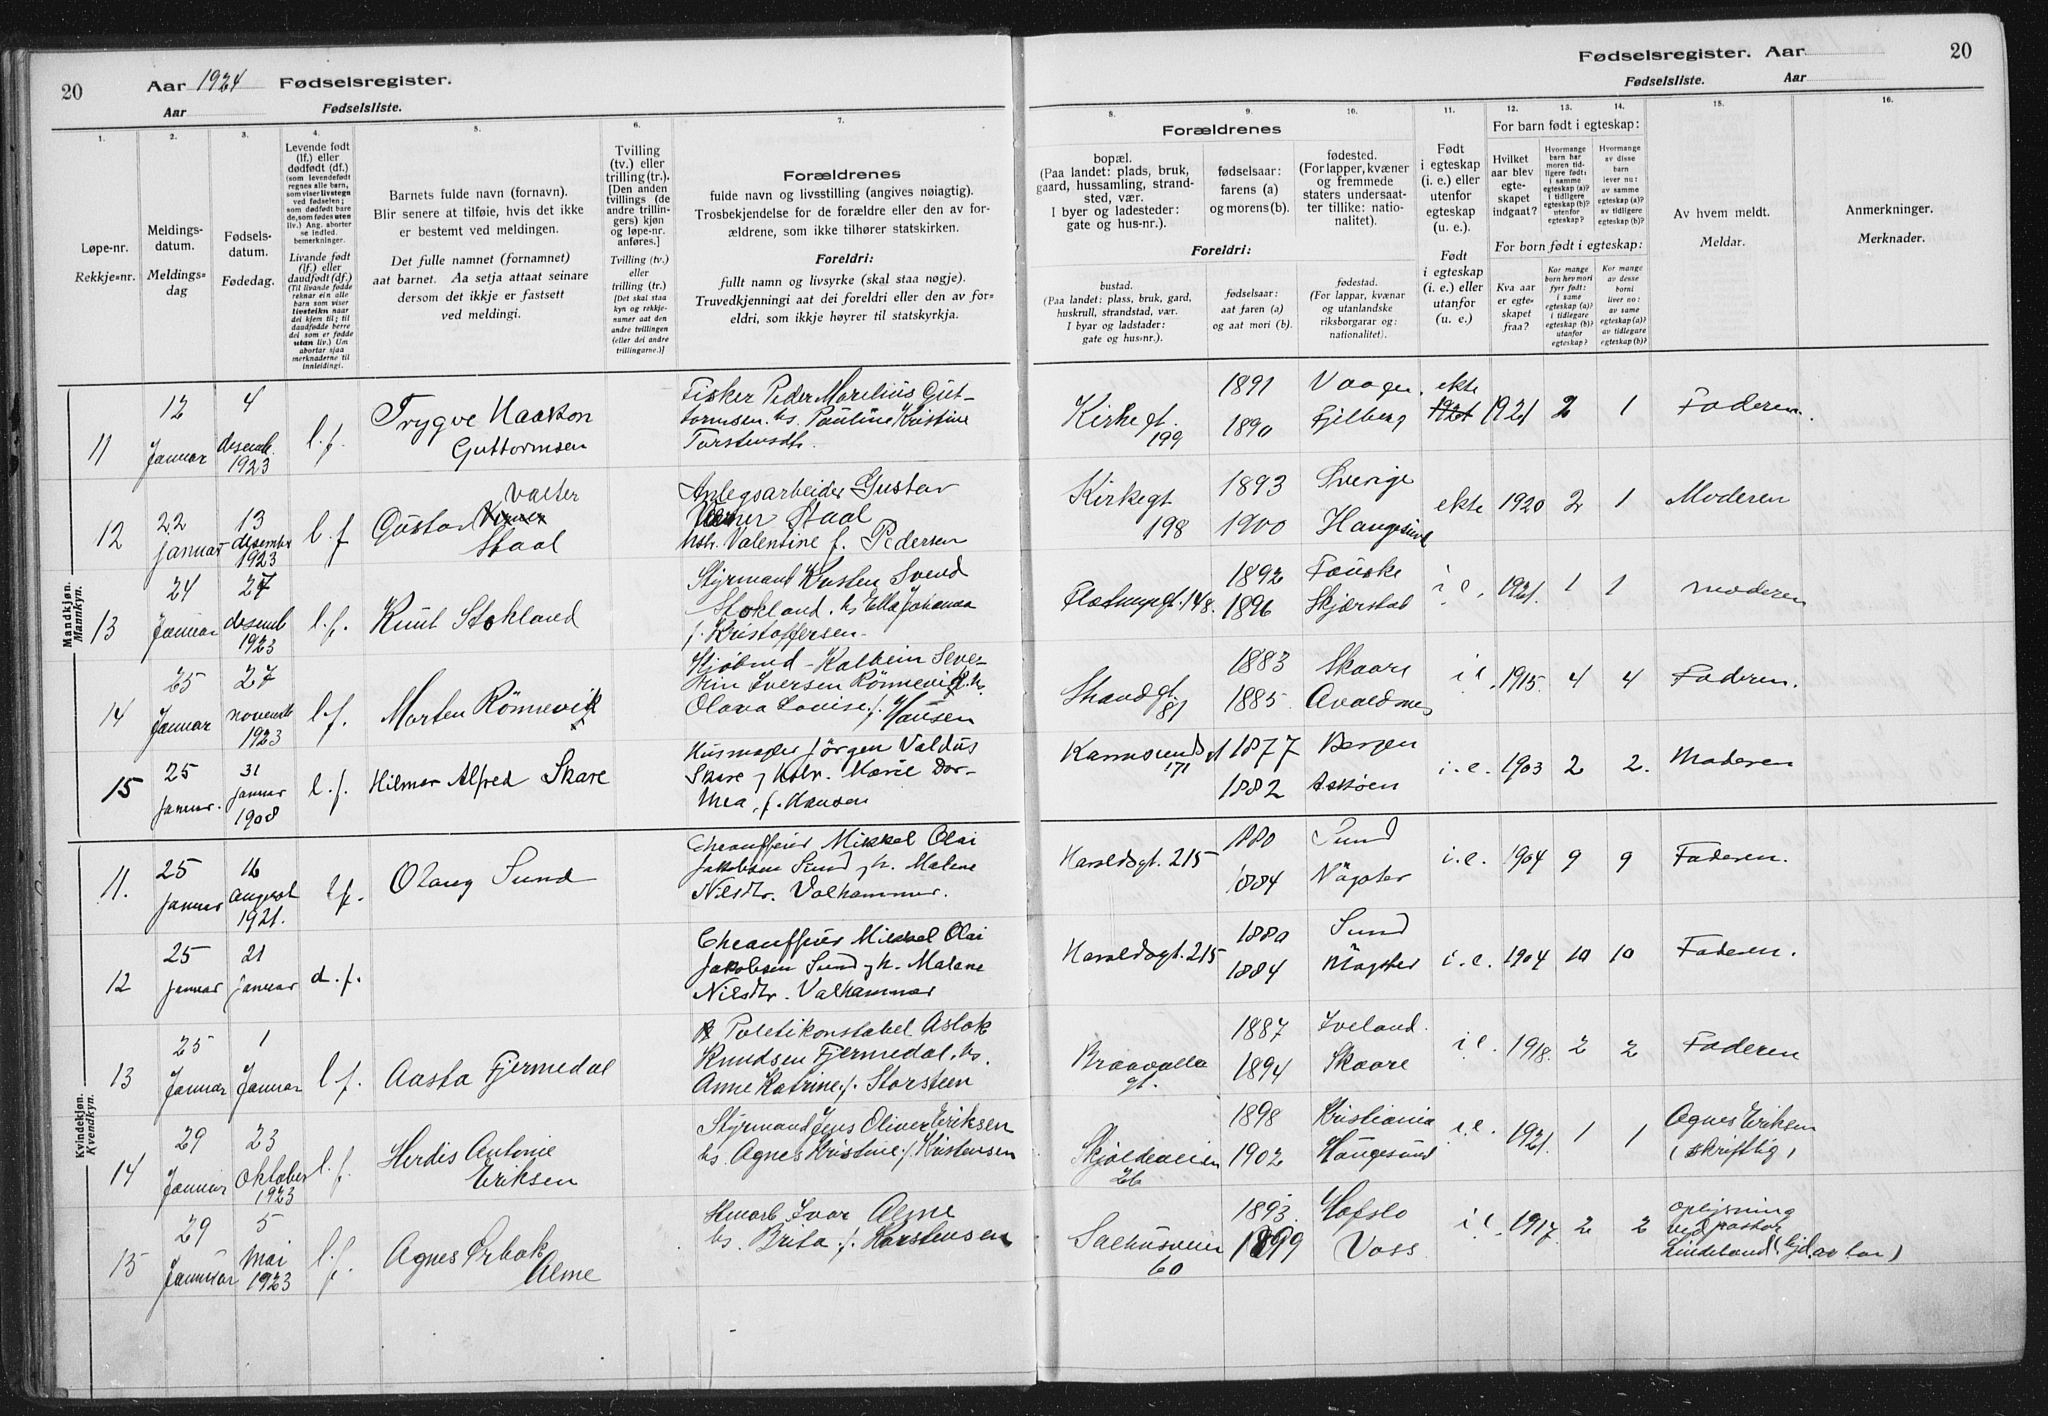 20
Aar 1924 Fødselsregister.
Aar Fødselsliste.
Fødselsregister. Aar
20
Fødselsliste. Aar
1.
Løpe-nr.
Rekkje-nr.
2.
Meldings-
datum.
Meldings-
dag
3.
Fødsels-
datum.
Fødedag.
4.
Levende født
(lf.) eller
dødfødt (df.)
(som levendefødt
regnes alle barn,
som viser livstegn
ved fødselen;
som dødfødt bare
de, som fødes uten
liv.) Ang. aborter
se indled.
bemerkninger.
Livande fødd
(lf.) eller
daudfødt (df.)
(Til livande fødde
reknar ein alle
barn som viser
livsteikn naar
dei kjem til; til
daudfødde berre
dei som er fødde
utan liv.) Um
abortar sjaa
merknaderne til
innleidingi.
5.
Barnets fulde navn (fornavn).
Blir senere at tilføie, hvis det ikke
er bestemt ved meldingen.
Det fulle namnet (fornamnet)
aat barnet. Aa setja attaat seinare
dersom det ikkje er fastsett
ved meldingi.
6.
Tvilling
(tv.) eller
trilling (tr.).
[Den anden
tvillings (de
andre trillin-
gers) kjøn
og løpe-nr.
anføres.]
Tvilling (tv.)
eller
trilling (tr.)
[Det skal staa
kyn og rekkje-
numer aat den
andre tvillingen
(eller dei andre
trillingarne.)]
7.
Forældrenes
fulde navn og livsstilling (angives nøiagtig).
Trosbekjendelse for de forældre eller den av for-
ældrene, som ikke tilhører statskirken.
Foreldri:
fullt namn og livsyrke (skal staa nøgje).
Truvedkjenningi aat dei foreldri eller den av for-
eldri, som ikkje høyrer til statskyrkja.
8.
Forældrenes
bopæl.
(Paa landet: plads, bruk,
gaard, hussamling, strand-
sted, vær.
I byer og ladesteder:
gate og hus-nr.).
Foreldri:
bustad.
(Paa landet: plass, bruk, gard,
huskrull, strandstad, vær.
I byar og ladstader:
gate og hus-nr.).
9.
fødselsaar:
farens (a)
og morens (b).
fødselsaar:
aat faren (a)
og aat mori (b).
10.
fødested.
(For lapper, kvæner
og fremmede
staters undersaat-
ter tillike: natio-
nalitet).
fødestad.
(For lappar, kvænar
og utanlandske
riksborgarar og:
nationalitet).
11.
Født
i egteskap
(i. e.) eller
utenfor
egteskap
(u. e.).
Født
i egteskap
(i. e.) eller
utanfor
(u. e.)
12. 13. 14.
For barn født i egteskap:
Hvilket
aar blev
egte-
skapet
indgaat?
Hvormange
barn har
moren tid-
ligere født:
i samme
egteskap (a)?
i tidligere
egteskap (b)?
utenfor
egteskap?
Hvormange
av disse
barn
lever nu:
av samme
egteskap (a)?
av tidligere
egteskap (b)?
For born født i egteskap:
Kva aar
er egte-
skapet
fraa?
Kor mange
born hev mori
fyrr født:
i same
egteskap (a)?
i tidlegare
egteskap (b)?
utanfor
egteskap?
Kor mange
av desse
borni
liver no:
av same
egteskap (a)?
av tidlegare
egteskap (b)?
15.
Av hvem meldt.
Meldar.
16.
Anmerkninger.
Merknader.
Mandkjøn.
Mannkyn.
11 12 Januar 4 desemb. 1923 l.f. Trygve Haakon Guttormsen
Fisker Peder Marelius Gut-
tormsen. hs Pauline Kristine
Torstensdtr.
Kirkegt. 199 1891 Vaagen. 1890 Fjelberg ekte 1921 1921 2 1 Faderen.
12 22 januar 13 desember 1923 l.f. Gustav Verner Valter Staal
Anlegsarbeider Gustav
Verner Staal
hstr. Valentine f. Pedersen
Kirkegt 198 1893 Sverige 1900 Haugesund ekte 1920 2 1 Moderen
13 24 Januar 27 desemb 1923 l.f. Knut Stokland
Styrmand Kristen Svend
Stokland. hs Ella Johanna
f. Kristoffersen.
148. 1892 Fauske 1896 Skjærstad i.e. 1921. 1 1 moderen
14 25 Januar 27 novemb 1923 l.f. Morten Rönnevik
Kjøbmd - Kalbein Seve-
rin Iversen Rönnevik. hs
Olava Lovise f. Hansen
Strandgt. 81 1883 Skaare 1885 Avaldsnes i.e. 1915. 4 4 Faderen.
15 25 januar. 31 januar 1908 l.f. Hilmar Alfred Skare
Husmægler Jörgen Valdus
Skare og hstr. Marie Dor-
thea, f. Hansen
Karmsundsgt 171 1877 Bergen 1882 Askøen i.e. 1903 2 2. Moderen
Kvindekjøn.
Kvendkyn.
11. 25 januar 16 august 1921. lf. Olaug Sund
Cheauffeur Mikkel Olai
Jakobsen Sund og h. Malene
Nilsdtr. Valhammer.
Haraldsgt. 215 1880 Sund 1884 Mögster i.e. 1904 9 9 Faderen.
12 25 januar 21 januar d.f.
Cheauffeur Mikkel Olai
Jakobsen Sund og h. Malene
Nilsdtr. Valhammer
Haraldsgt. 215 1880 Sund 1884 Mögster i.e. 1904 10 10 Faderen.
13 25 Januar 1 Januar l.f. Aasta Fjermedal
Poletikonstabel Aslak
Knudsen Fjermedal. hs.
Anne Katrine f. Storsteen
Braavalla gt. 1887 Iveland. 1894 Skaare i.e. 1918. 2 2 Faderen
14 29 Januar 23 Oktober 1923 l.f. Herdis Antonie Eriksen
Styrmand Jens Oliver Eriksen
hs. Agnes Kristine f. Kristensen
Skjoldeveien 26 1898 Kristiania 1902 Haugesund i.e. 1921. 1 1 Agnes Eriksen (skriftlig)
15 29 Januar 5 Mai 1923 l.f. Agnes Ørbak Alme
Ivar Alme
hs. Brita f. Horstensen
Salhusveien 60 1893. Hafslo 1899 Voss i.e. 1917. 2 2 oplysning ved pastor Lindeland